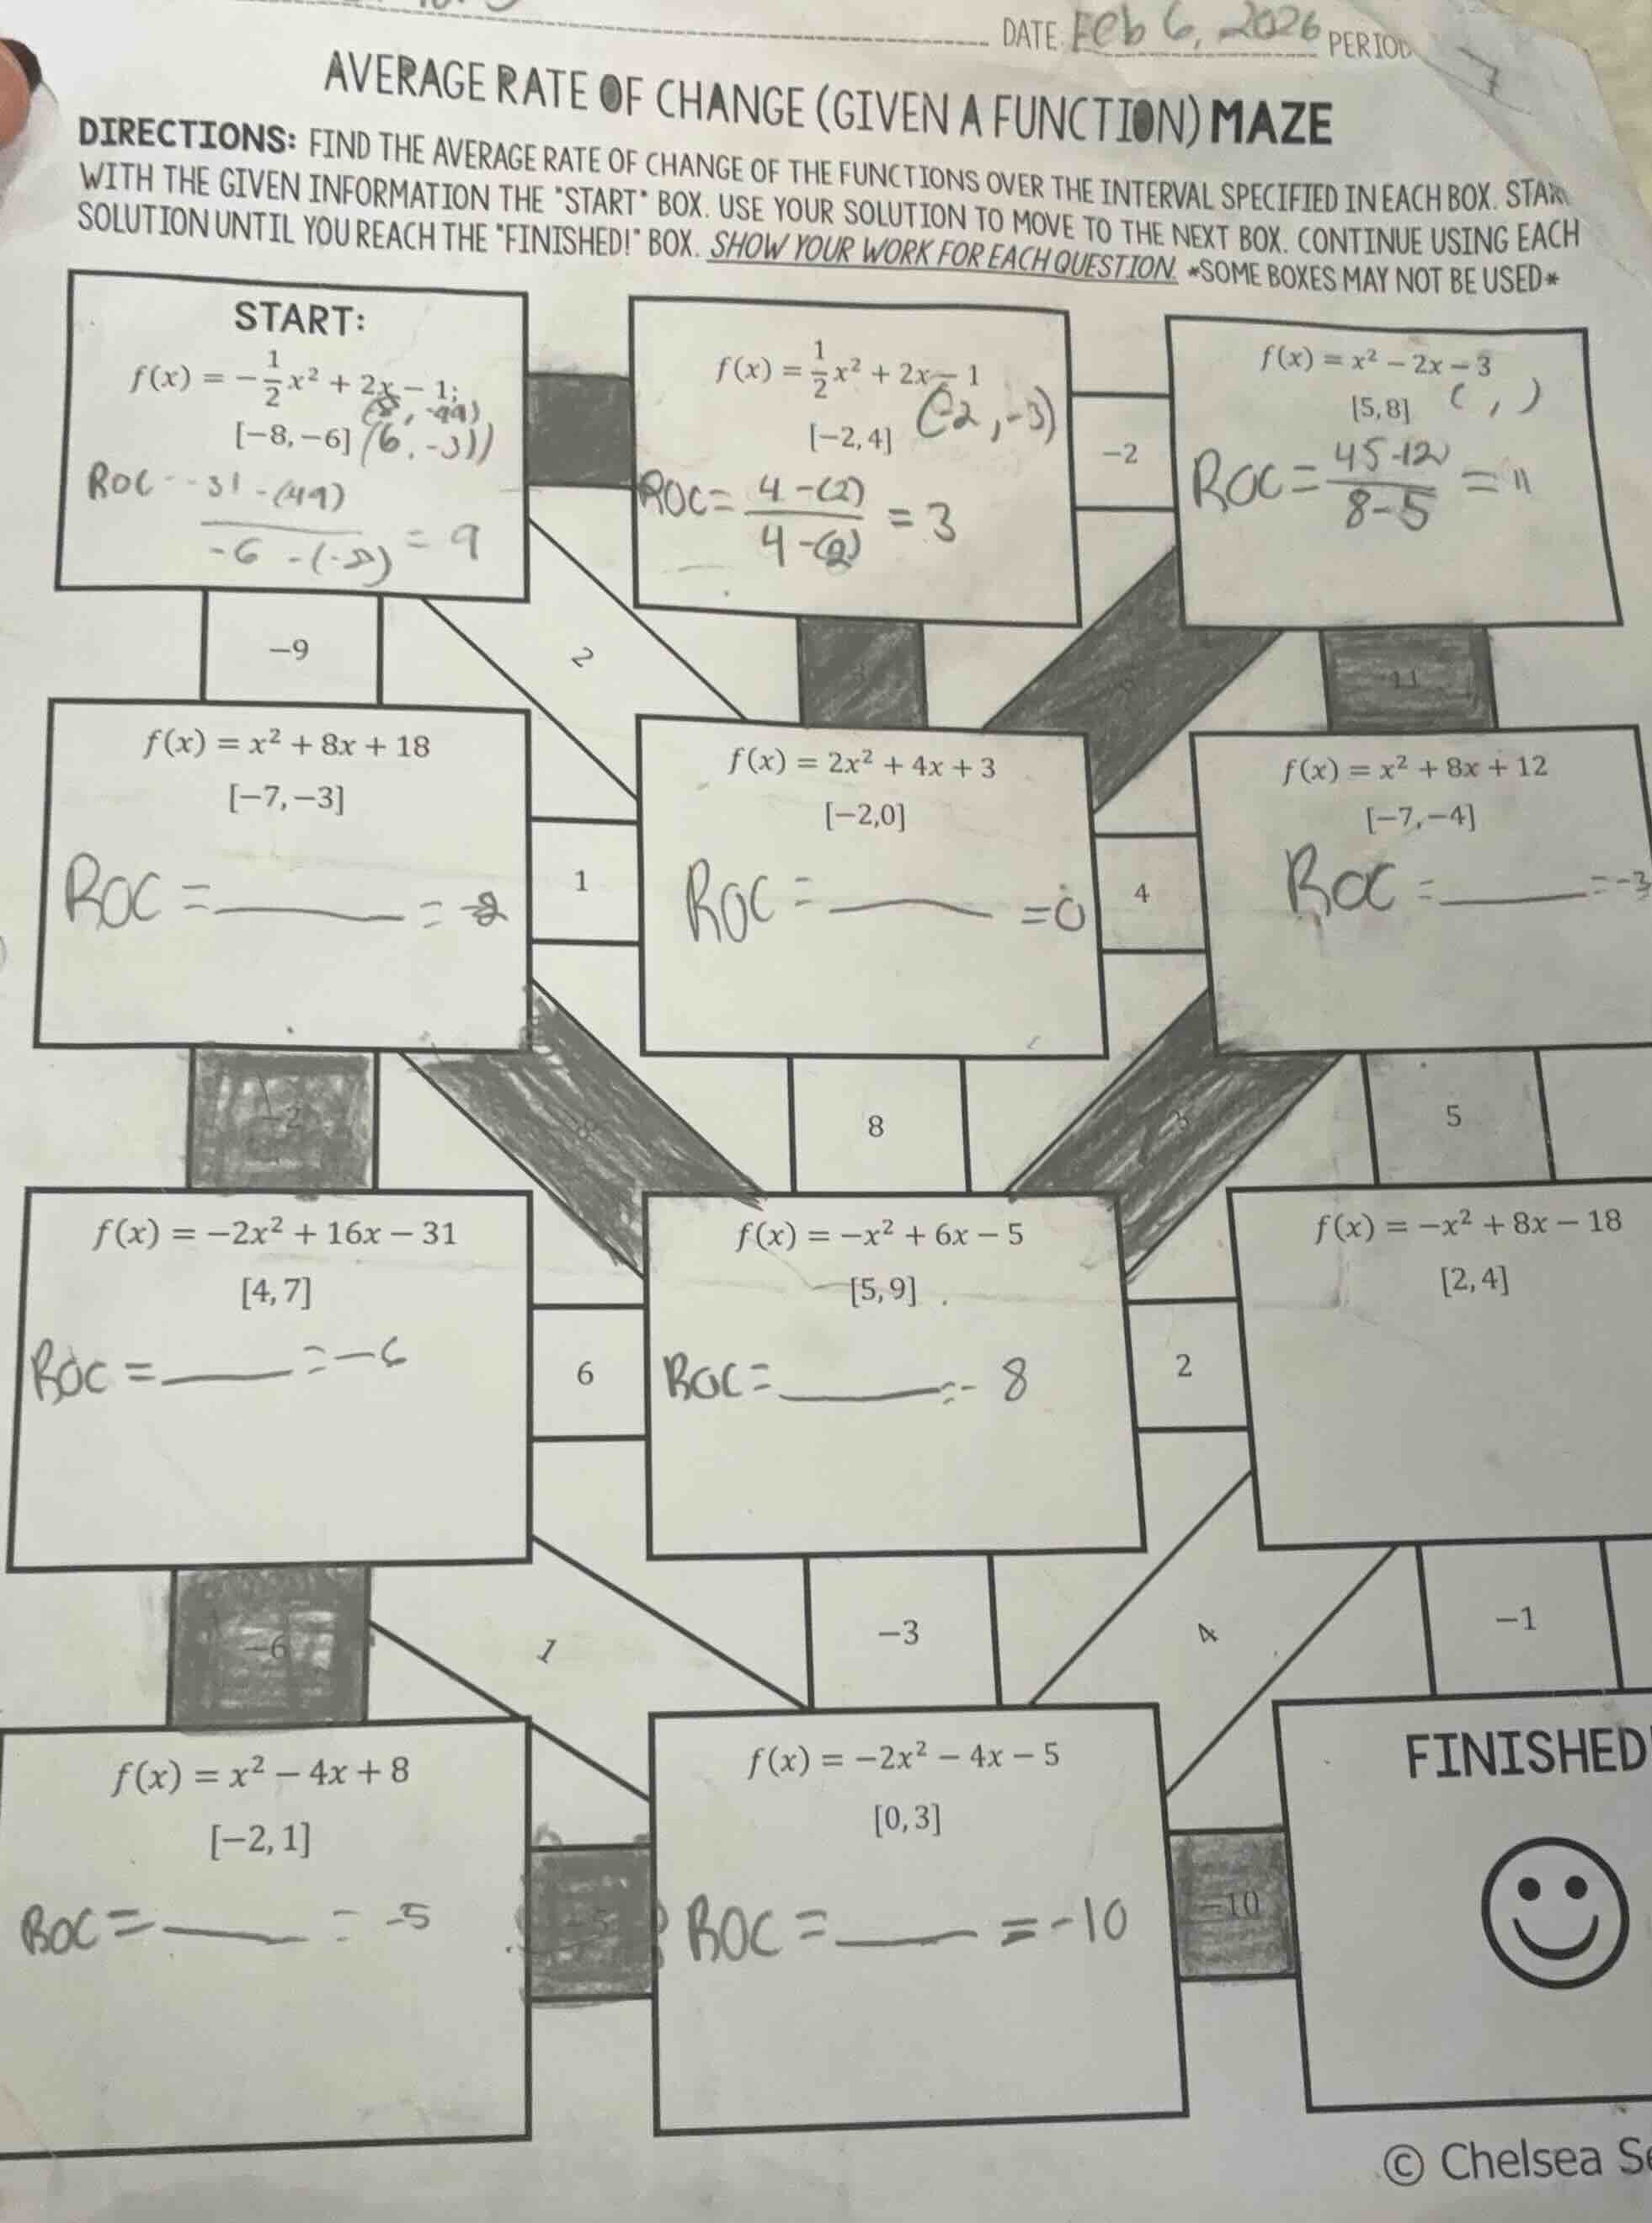 DATE: Feb 6, 2026 PERIOD 7
AVERAGE RATE OF CHANGE (GIVEN A FUNCTION) MAZE
DIRECTIONS: FIND THE AVERAGE RATE OF CHANGE OF THE FUNCTIONS OVER THE INTERVAL SPECIFIED IN EACH BOX. STAR
WITH THE GIVEN INFORMATION THE "START" BOX. USE YOUR SOLUTION TO MOVE TO THE NEXT BOX. CONTINUE USING EACH
SOLUTION UNTIL YOU REACH THE "FINISHED!" BOX. SHOW YOUR WORK FOR EACH QUESTION. *SOME BOXES MAY NOT BE USED*
START:
f(x) = −1/2x² + 2x − 1;
(8, -49)
[−8,−6] (6, -31)
ROC - -31 -(49)
-6 -(-8) = 9
f(x) = 1/2x² + 2x − 1
[−2, 4] (-2, -3)
ROC = 4-(2)
4-(2) = 3
−2
f(x) = x² − 2x − 3
[5,8] ( , )
ROC = 45-12
8-5 = 11
−9
2
11
f(x) = x² + 8x + 18
[−7,−3]
ROC = ____ = -2
1
f(x) = 2x² + 4x + 3
[−2,0]
ROC = ____ = 0
4
f(x) = x² + 8x + 12
[−7,−4]
ROC = ____ = -3
−2
8
−3
5
f(x) = −2x² + 16x − 31
[4,7]
ROC = ____ = -6
6
f(x) = −x² + 6x − 5
[5,9]
ROC = ____ = - 8
2
f(x) = −x² + 8x − 18
[2,4]
−6
1
−3
4
−1
f(x) = x² − 4x + 8
[−2,1]
ROC = ____ = -5
−5
f(x) = −2x² − 4x − 5
[0,3]
ROC = ____ = -10
−10
FINISHED
© Chelsea Se